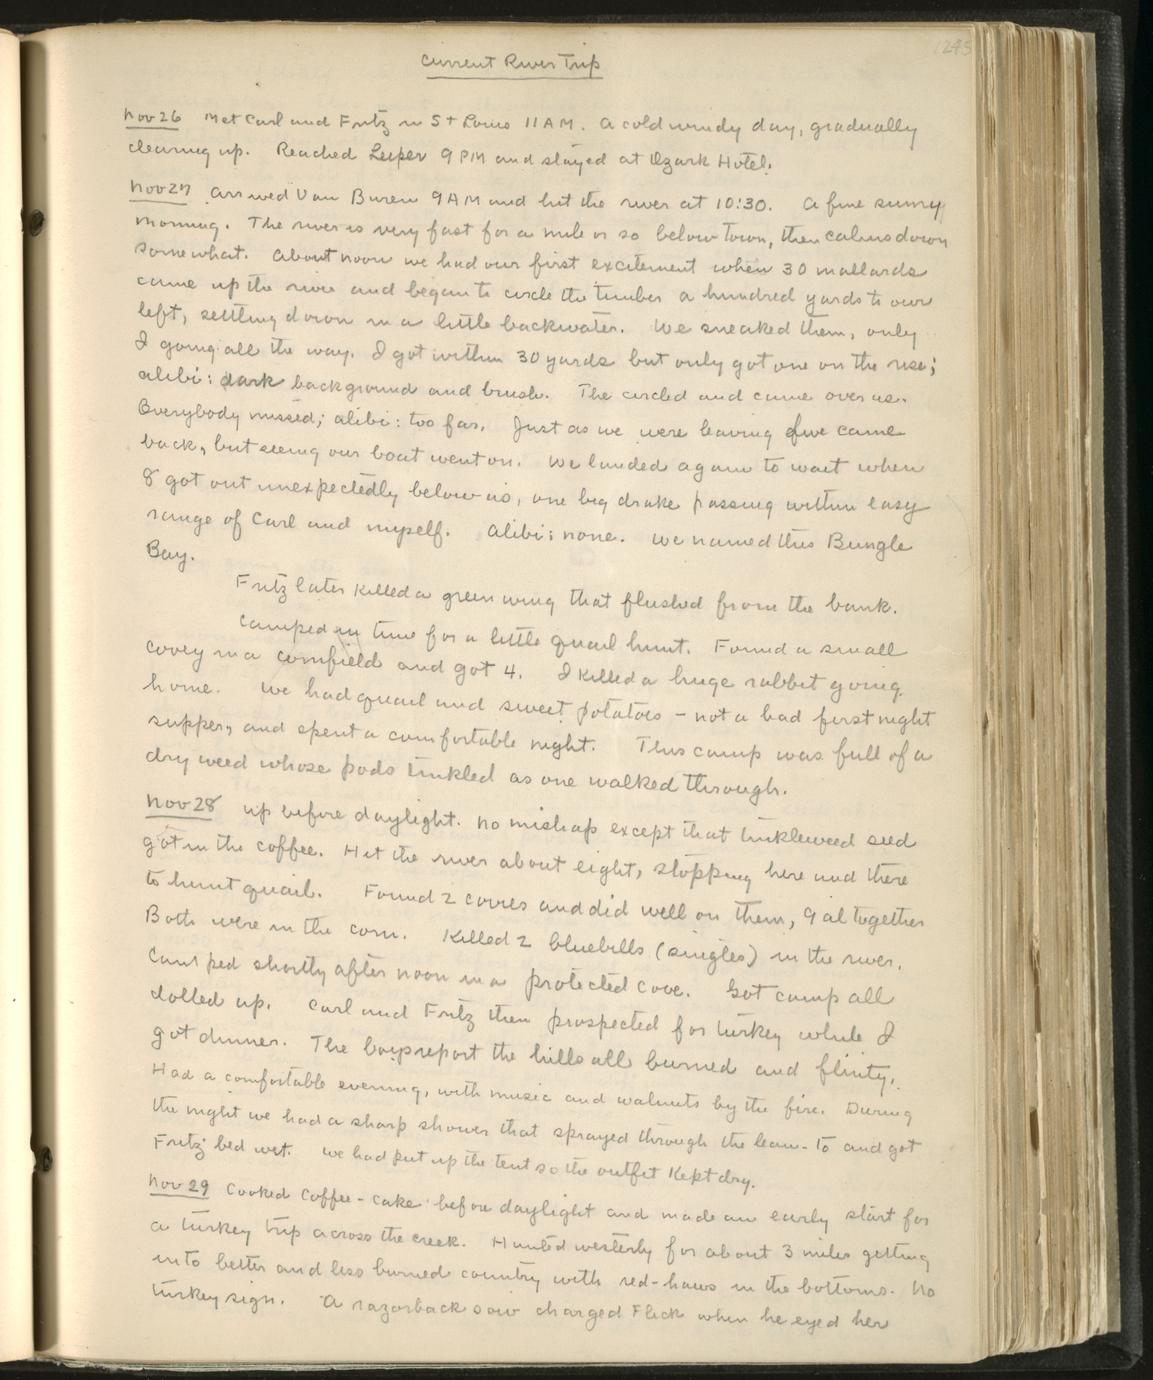 1245
Current River Trip
Nov 26 Met Carl and Fritz in St Louis 11 AM. A cold windy day, gradually
clearing up. Reached Leeper 9 PM and stayed at Ozark Hotel.
Nov 27 Arrived Van Buren 9 AM and hit the river at 10:30. A fine sunny
morning. The river is very fast for a mile or so below town, then calms down
somewhat. About noon we had our first excitement when 30 mallards
came up the river and began to circle the timber a hundred yards to our
left, settling down in a little backwater. We sneaked them, only
I going all the way. I got within 30 yards but only got one on the rise;
alibi: dark background and brush. The circled and came over us.
Everybody missed; alibi: too far. Just as we were leaving five came
back, but seeing our boat went on. We landed again to wait when
8 got out unexpectedly below us, one big drake passing within easy
range of Carl and myself. Alibi: none. We named this Bungle
Bay.
Fritz later killed a green wing that flushed from the bank.
Camped in time for a little quail hunt. Found a small
covey in a cornfield and got 4. I killed a huge rabbit going
home. We had quail and sweet potatoes - not a bad first night
supper, and spent a comfortable night. This camp was full of a
dry weed whose pods tinkled as one walked through.
Nov 28 up before daylight. No mishap except that tinkleweed seed
got in the coffee. Hit the river about eight, stopping here and there
to hunt quail. Found 2 covies and did well on them, 9 altogether
Both were in the corn. Killed 2 bluebills (singles) in the river.
Camped shortly after noon in a protected cove. Got camp all
dolled up. Carl and Fritz then prospected for turkey while I
got dinner. The boys report the hills all burned and flinty.
Had a comfortable evening, with music and walnuts by the fire. During
the night we had a sharp shower that sprayed through the lean-to and got
Fritz' bed wet. We had put up the tent so the outfit kept dry.
Nov 29 Cooked coffee-cake before daylight and made an early start for
a turkey trip across the creek. Hunted westerly for about 3 miles getting
into better and less burned country with red-haws in the bottoms. No
turkey sign. A razorback sow charged Flick when he eyed her